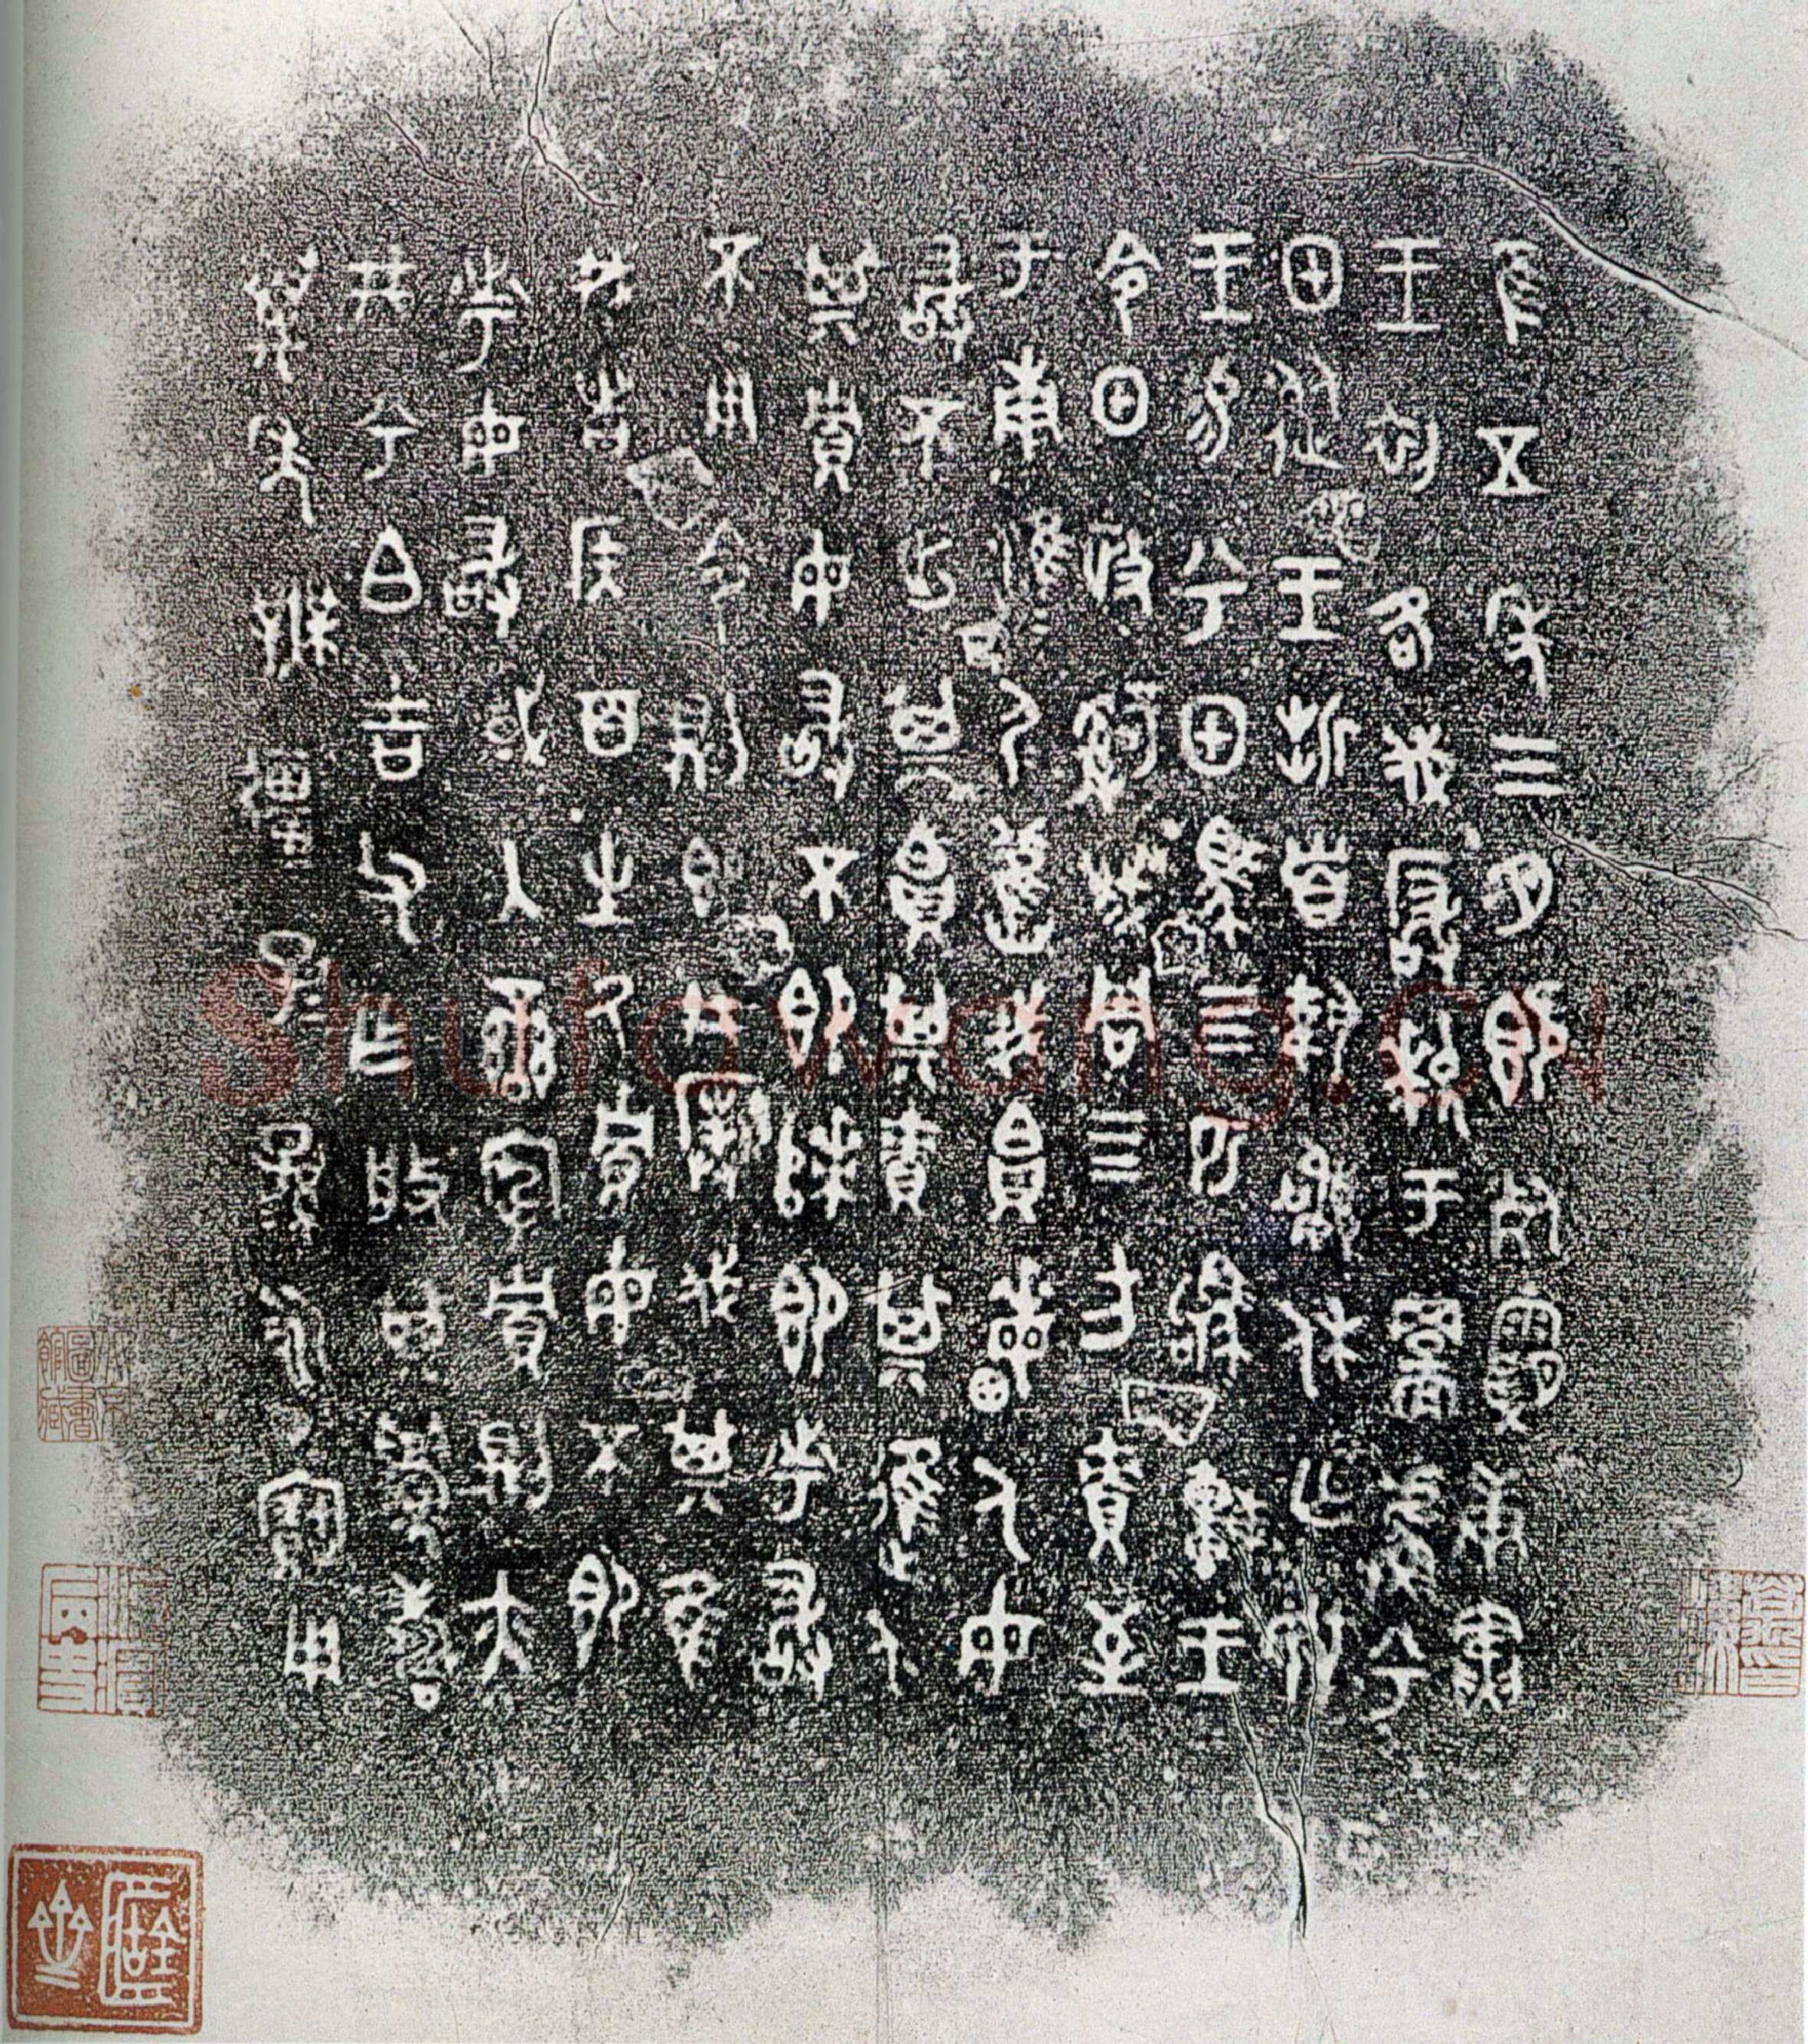 隹五年三月既死霸庚寅
王初各伐玁狁于䣙䖒兮
甲從王折首執訊休亡敃
王易兮甲馬四匹駒車王
令甲政𤔲成周四方責至
于南淮夷淮夷舊我帛畮人毋
敢不出其帛其責其進人
其貯毋敢不即次即市敢
不用令則即井撲伐其隹
我者侯百生厥貯毋不即
市毋敢或入蠻宄貯則亦
井兮白吉父乍般其眉壽
萬年無疆子子孫孫永寶用
Shufawang.CN